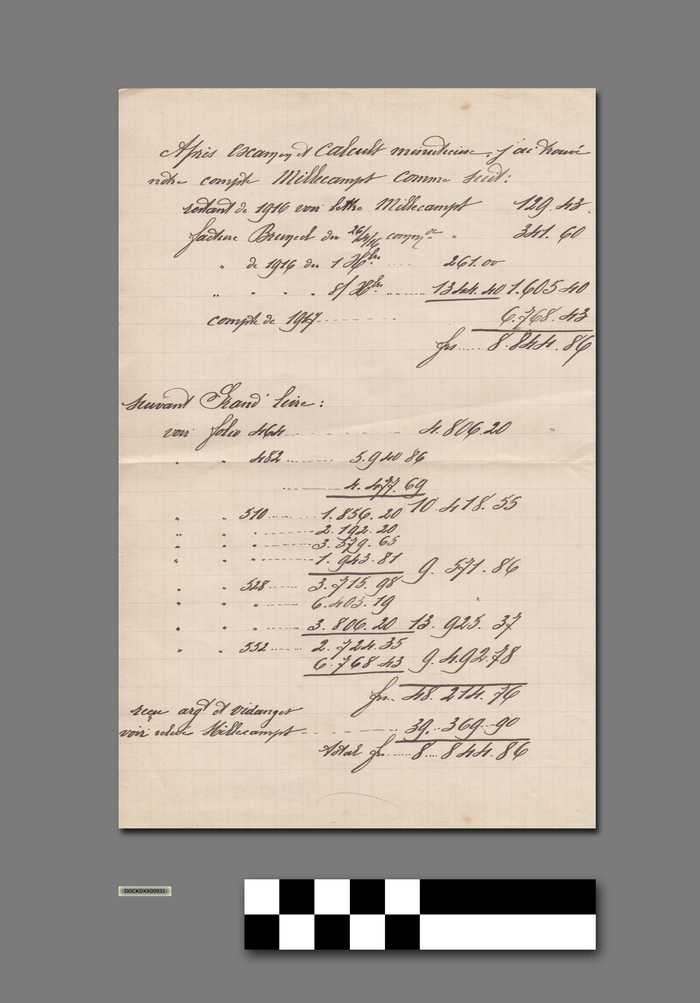 Après examen et calcult minutieuse, j'ai trouvé
notre compte Millecampt comme suit:
restant de 1916 voir lettre Millecampt 129.43.
facture Brunect du 26/12/16 comm " 341.60
" de 1916 du 1 Hbre .... 261.00
" " " " 8/Hbre ........ 1344.40 1.605 40
compte de 1917 ........ 6.768.43
frs ..... 8.844.86
suivant Grand livre:
voir folio 464 ........ 4.806.20
" " 482 ........ 5.940 86
........ 4.477.69
10 418.55
" " 510 ........ 1.856.20
" " " ........ 2.192.20
" " " ........ 3.579.65
" " " ........ 1.943.81
9.571.86
" " 528 ........ 3.715.98
" " " ........ 6.403.19
" " " ........ 3.806.20 13.925.37
" " 532 ........ 2.724.35
6.768 43 9.492.78
frs. 48.214.76
reçu argt et vidanges
voir relevé Millecampt ........ 39.369.90
total frs ..... 8....844.86
DOCKDXX00931